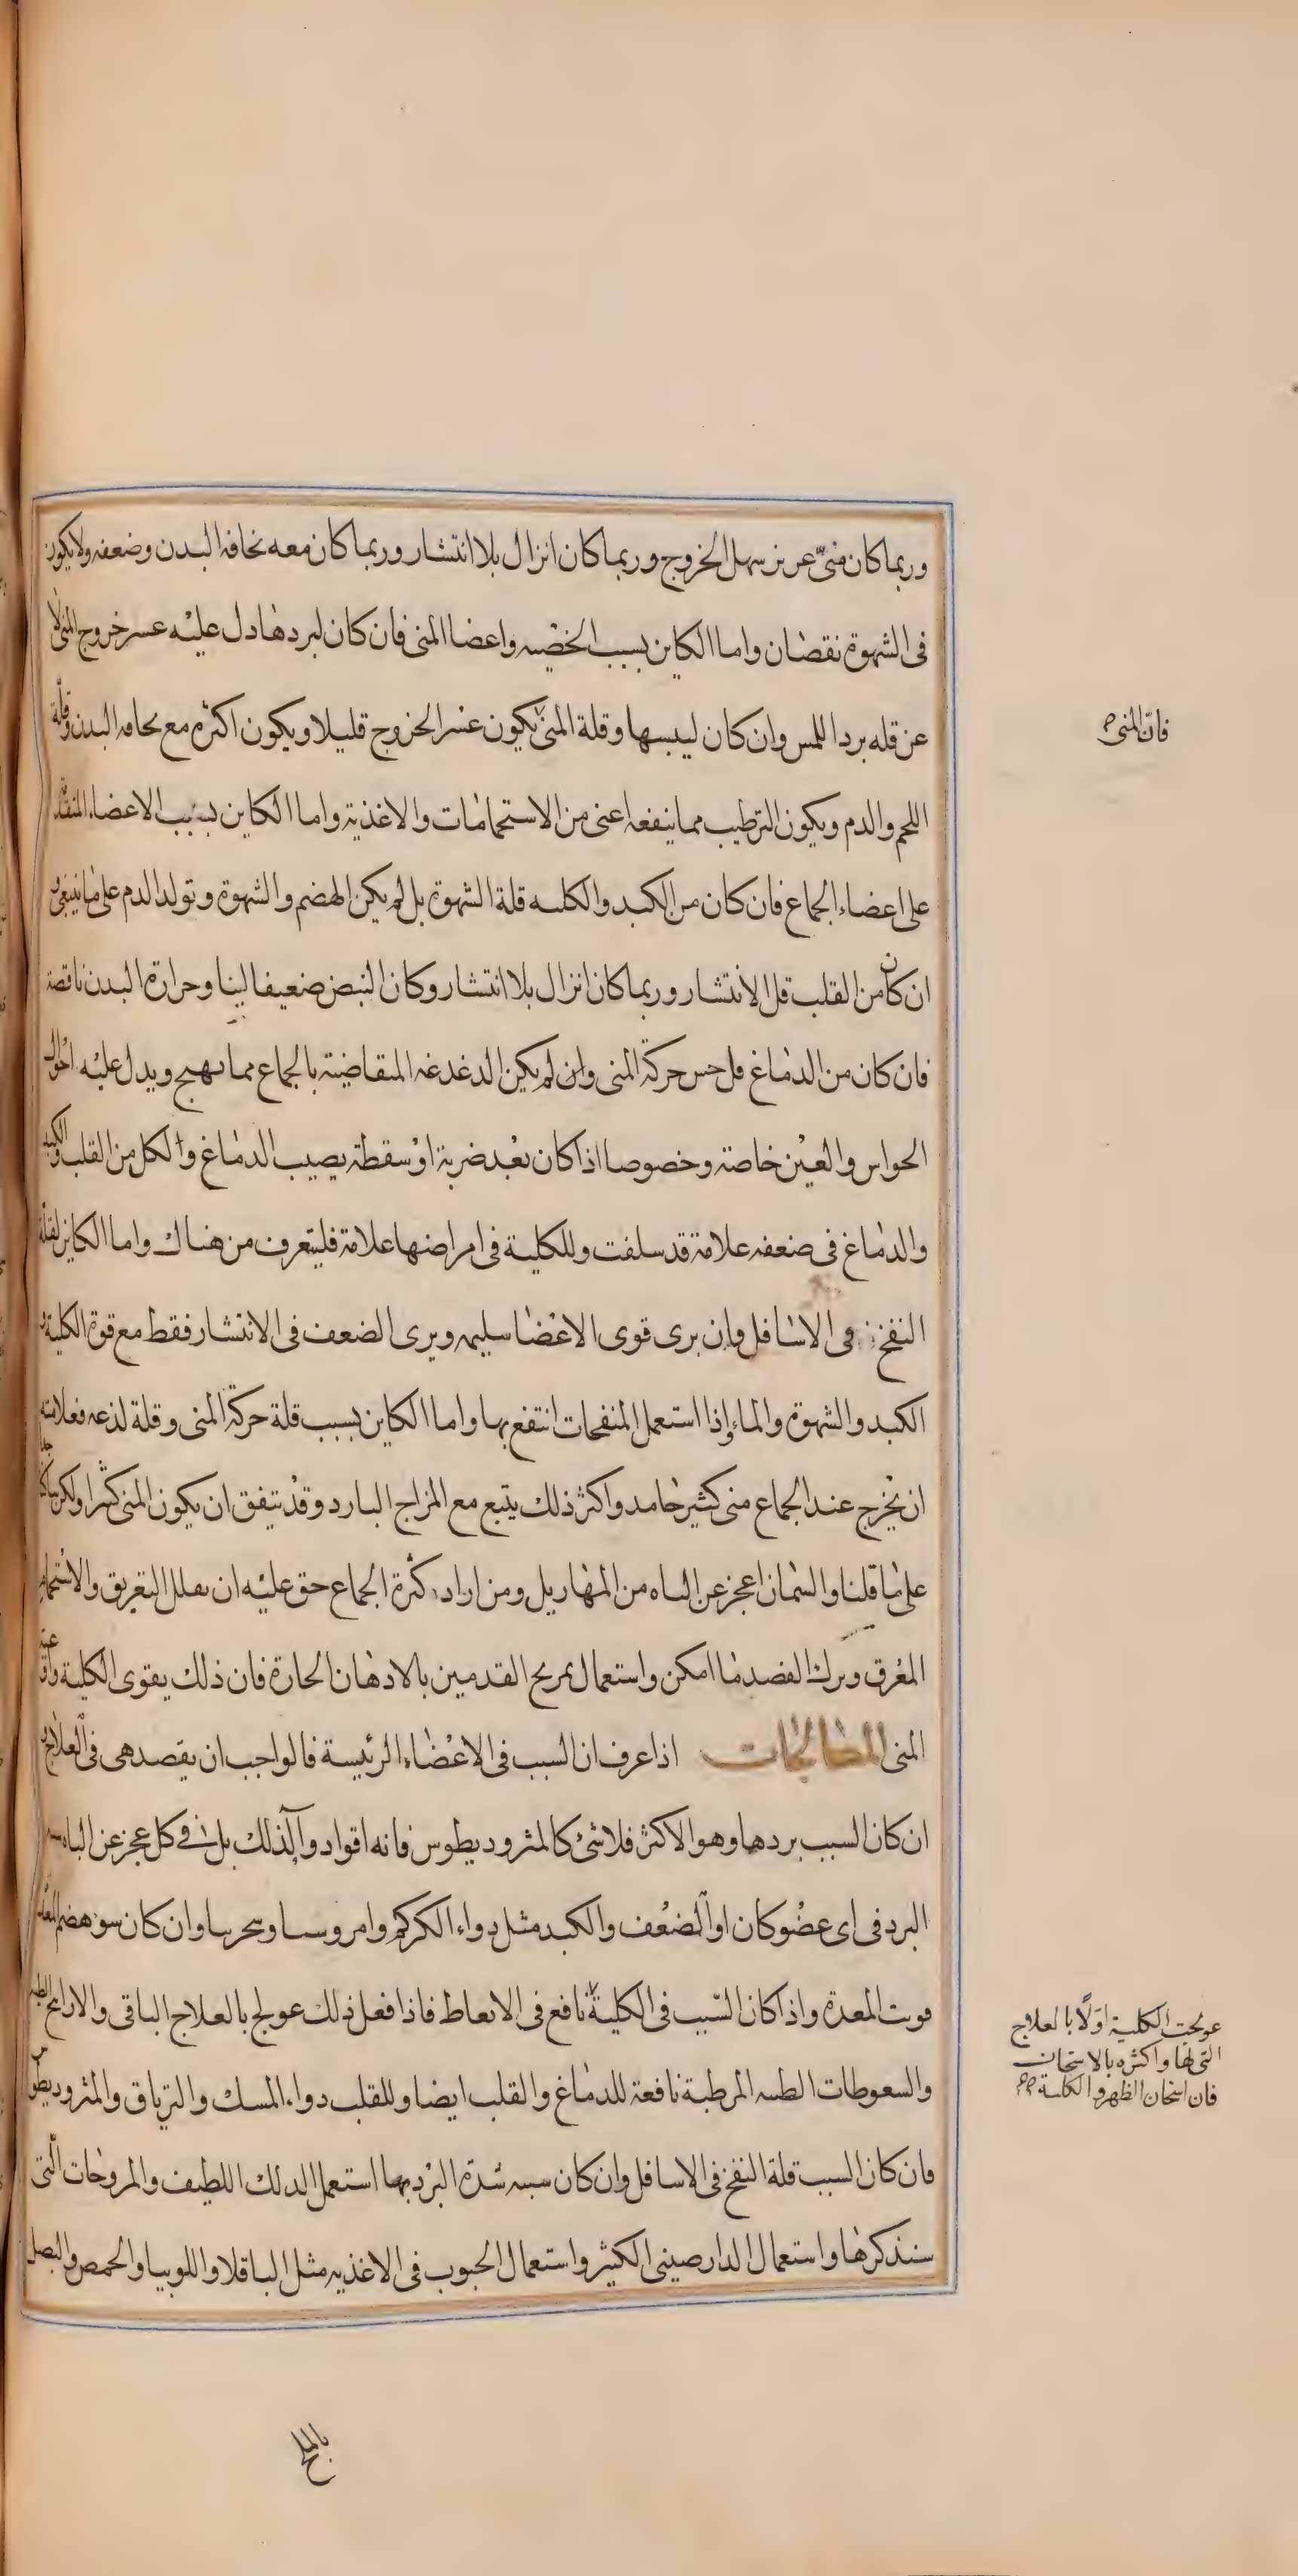 وربما كان منىّ عزيز سهل الخروج وربما كان انزال بلا انتشار وربما كان معه نحافه البدن وضعفه ولا يكون
فى الشهوة نقصان واما الكاين بسبب الخصيه واعضا المنى فان كان لبردها دل عليه عسر خروج المنى لا
عن قله برد اللمس وان كان ليبسها وقلة المنى يكون عسر الخروج قليلا ويكون اكثره مع نحافه البدن وقلّة
اللحم والدم ويكون الترطيب مما ينفعه اعنى من الاستحمامات والاغذية واما الكاين بسبب الاعضاء المتقدمة
على اعضاء الجماع فان كان من الكبد والكليه قلة الشهوة بل لم يكن الهضم والشهوة وتولد الدم على ما ينبغى و
ان كان من القلب قل الانتشار وربما كان انزال بلا انتشار وكان النبض ضعيفا لينا وحرارة البدن ناقصة
فان كان من الدماغ قل حس حركة المنى وان لم يكن الدغدغه المتقاضية بالجماع مما يهيج ويدل عليه احوال
الحواس والعين خاصة وخصوصا اذا كان بعد ضربة او سقطة يصيب الدماغ ولكل من القلب والكبد
والدماغ فى ضعفه علامة قد سلفت وللكلية فى امراضها علامة فليتعرف من هناك واما الكاين لقلة
النفخ فى الاسافل وان يرى قوى الاعضا سليمه ويرى الضعف فى الانتشار فقط مع قوة الكلية و
الكبد والشهوة والماء واذا استعمل المنفخات انتفع بها واما الكاين بسبب قلة حركة المنى وقلة لذعه فعلامته
ان يخرج عند الجماع منى كثير جامد واكثر ذلك يتبع مع المزاج البارد وقد يتفق ان يكون المنى كثيرا ولكن ساكنا
على ما قلنا والسمان اعجز عن الباه من المهازيل ومن اراد كثرة الجماع حق عليه ان يقلل التعريق والاستحمام
المعرق وترك الفصد ما امكن واستعمال تمريخ القدمين بالادهان الحارة فان ذلك يقوى الكلية واوعية
المنى المعالجات اذا عرف ان السبب فى الاعضاء الرئيسة فالواجب ان يقصد هى فى العلاج و
ان كان السبب بردها وهو الاكثر فلا شئ كالمثروديطوس فانه اقوا دوا لذلك بل فى كل عجز عن الباه
البرد فى اى عضو كان او الضعف والكبد مثل دواء الكركم وامروسيا وسحرسا وان كان سوء هضم المعدة
قويت المعدة واذا كان السبب فى الكلية نافع فى الانعاظ فاذا فعل ذلك عولج بالعلاج الباقى والارايح الطيبة
والسعوطات الطيبه المرطبة نافعة للدماغ والقلب ايضا وللقلب دواء المسك والترياق والمثروديطوس
فان كان السبب قلة النفخ فى الاسافل وان كان سببه شدة البرد بها استعمل الدلك اللطيف والمروخات التى
سنذكرها واستعمال الدارصينى الكثير واستعمال الحبوب فى الاغذيه مثل الباقلا واللوبيا والحمص والبصل
فان المنى
عولجت الكلية اولًا بالعلاج
التى لها واكثره بالاسخان
فان اسخان الظهر والكلية
بالملح